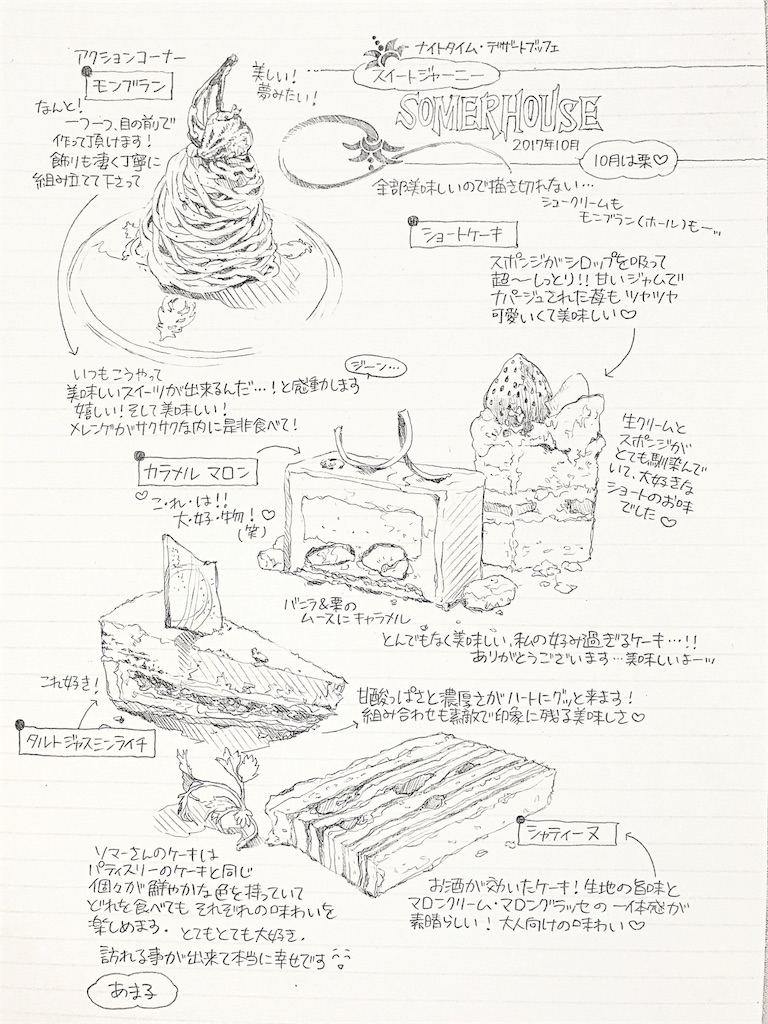 ナイトタイム・デザートブッフェ
スイートジャーニー
SOMERHOUSE
2017年10月
10月は栗♡
全部美味しいので描き切れない…
シュークリームも
モンブラン(ホール)もー…
アクションコーナー
モンブラン
美しい!
夢みたい!
なんと!
一つ一つ、目の前で
作って頂けます!
飾りも凄く丁寧に
組み立てて下さって
いつもこうやって
美味しいスイーツが出来るんだ…!と感動します
嬉しい!そして美味しい!
メレンゲがサクサクな内に是非食べて!
ジーン…
ショートケーキ
スポンジがシロップを吸って
超〜しっとり!!甘いジャムで
ナパージュされた苺もツヤツヤ
可愛いくて美味しい♡
生クリームと
スポンジが
とても馴染んで
いて、大好きな
ショートのお味
でした♡
カラメル マロン
♡こ・れ・は!!
大・好・物!♡
(笑)
バニラ&栗の
ムースにキャラメル
とんでもなく美味しい、私の好み過ぎるケーキ…!!
ありがとうございます…美味しいよー…
これ好き!
タルトジャスミンライチ
甘酸っぱさと濃厚さがハートにグッと来ます!
組み合わせも素敵で印象に残る美味しさ♡
シャティーヌ
お酒が効いたケーキ!生地の旨味と
マロンクリーム・マロングラッセの一体感が
素晴らしい!大人向けの味わい♡
ソマーさんのケーキは
パティスリーのケーキと同じ
個々が鮮やかな色を持っていて
どれを食べても それぞれの味わいを
楽しめます. とてもとても大好き.
訪れる事が出来て本当に幸せです
あま子